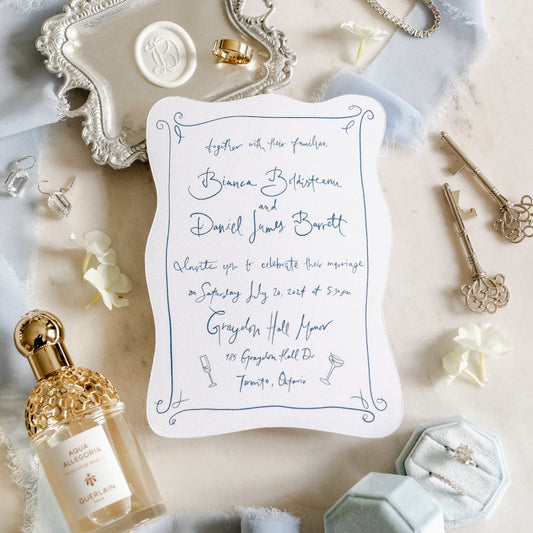 together with their families,
Bianca Boldisteanu
and
Daniel James Barrett
Invite you to celebrate their marriage
on Saturday July 20, 2024 at 5:30pm
Graydon Hall Manor
185 Graydon Hall Dr
Toronto, Ontario
B
AQUA
ALLEGORIA
MANDARINE BASILIC
GUERLAIN
PARIS